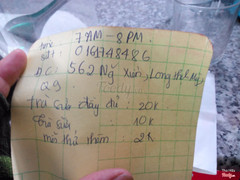 7 AM - 8 PM
sđt: 016148486
đ/c: 562 Ng. Xiển, Long Thạnh Mỹ,
Q9
Trà sữa đầy đủ : 20k
Trà sữa : 10k
mỗi thứ thêm : 2k